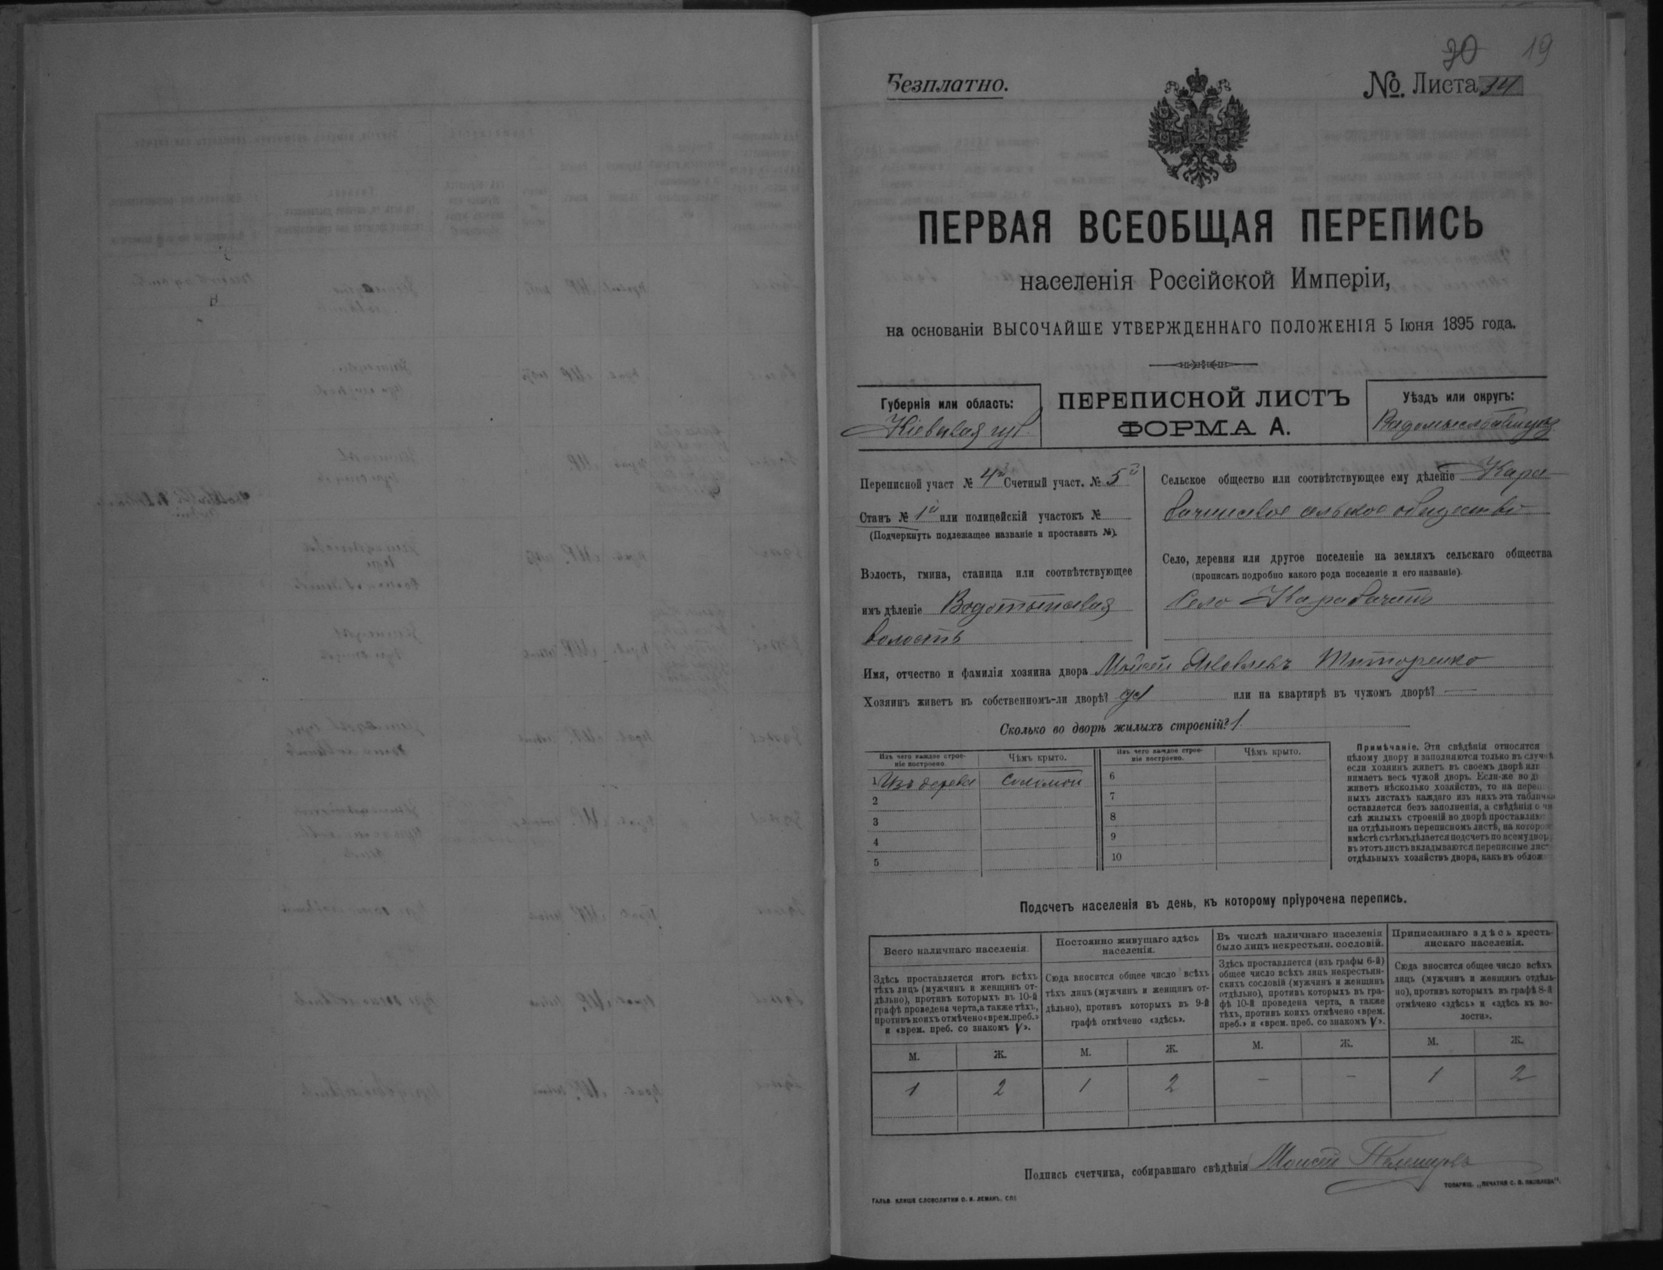 20 19
Безплатно.
№. Листа 34
ПЕРВАЯ ВСЕОБЩАЯ ПЕРЕПИСЬ
населенія Россійской Имперіи,
на основаніи ВЫСОЧАЙШЕ УТВЕРЖДЕННАГО ПОЛОЖЕНІЯ 5 Іюня 1895 года.
Губернія или область:
Кіевская губ.
ПЕРЕПИСНОЙ ЛИСТЪ
ФОРМА А.
Уѣздъ или округъ:
Переписной участ № 4й Счетный участ. № 5й
Станъ № 1й или полицейскій участокъ №
(Подчеркнуть подлежащее названіе и проставить №).
Волость, гмина, станица или соотвѣтствующее
имъ дѣленіе
волость
Сельское общество или соотвѣтствующее ему дѣленіе Кара
бачинское сельское общество
Село, деревня или другое поселеніе на земляхъ сельскаго общества
(прописать подробно какого рода поселеніе и его названіе).
Село Карабачинъ
Имя, отчество и фамилія хозяина двора Моисей Яковлевъ Титоренко
Хозяинъ живетъ въ собственномъ-ли дворѣ? да или на квартирѣ въ чужомъ дворѣ? —
Сколько во дворѣ жилыхъ строеній? 1
Изъ чего каждое строе-
ніе построено.
Чѣмъ крыто.
1 Изъ дерева соломой
2
3
4
5
Изъ чего каждое строе-
ніе построено.
Чѣмъ крыто.
6
7
8
9
10
Примѣчаніе. Эти свѣдѣнія относятся
цѣлому двору и заполняются только въ случаѣ
если хозяинъ живетъ въ своемъ дворѣ или
нимаетъ весь чужой дворъ. Если-же во д
живетъ нѣсколько хозяйствъ, то на переп
ныхъ листахъ каждаго изъ нихъ эта табличка
оставляется безъ заполненія, а свѣдѣнія о чи
слѣ жилыхъ строеній во дворѣ проставляю
на отдѣльномъ переписномъ листѣ, на которомъ
вмѣстѣ съ тѣмъ дѣлается подсчетъ по всему двору
въ этотъ листъ вкладываются переписные лис
отдѣльныхъ хозяйствъ двора, какъ въ облож
Подсчетъ населенія въ день, къ которому пріурочена перепись.
Всего наличнаго населенія.
Здѣсь проставляется итогъ всѣхъ
тѣхъ лицъ (мужчинъ и женщинъ от-
дѣльно), противъ которыхъ въ 10-й
графѣ проведена черта, а также тѣхъ,
противъ коихъ отмѣчено «врем. преб.»
и «врем. преб. со знакомъ V».
М. Ж.
1 2
Постоянно живущаго здѣсь
населенія.
Сюда вносится общее число всѣхъ
тѣхъ лицъ (мужчинъ и женщинъ от-
дѣльно), противъ которыхъ въ 9-й
графѣ отмѣчено «здѣсь».
М. Ж.
1 2
Въ числѣ наличнаго населенія
было лицъ некрестьян. сословій.
Здѣсь проставляется (изъ графы 6-й)
общее число всѣхъ лицъ некрестьян-
скихъ сословій (мужчинъ и женщинъ
отдѣльно), противъ которыхъ въ гра-
фѣ 10-й проведена черта, а также
тѣхъ, противъ коихъ отмѣчено «врем.
преб.» и «врем. преб. со знакомъ V».
М. Ж.
– –
Приписаннаго здѣсь кресть-
янскаго населенія.
Сюда вносится общее число всѣхъ
лицъ (мужчинъ и женщинъ отдѣль-
но), противъ которыхъ въ графѣ 8-й
отмѣчено «здѣсь» и «здѣсь въ во-
лости».
М. Ж.
1 2
Подпись счетчика, собиравшаго свѣдѣнія Моисей
ГАЛЬВ. КЛИШЕ СЛОВОЛИТНИ О. И. ЛЕМАНЪ, СПБ
ТОВАРИЩ. „ПЕЧАТНЯ С. П. ЯКОВЛЕВА".